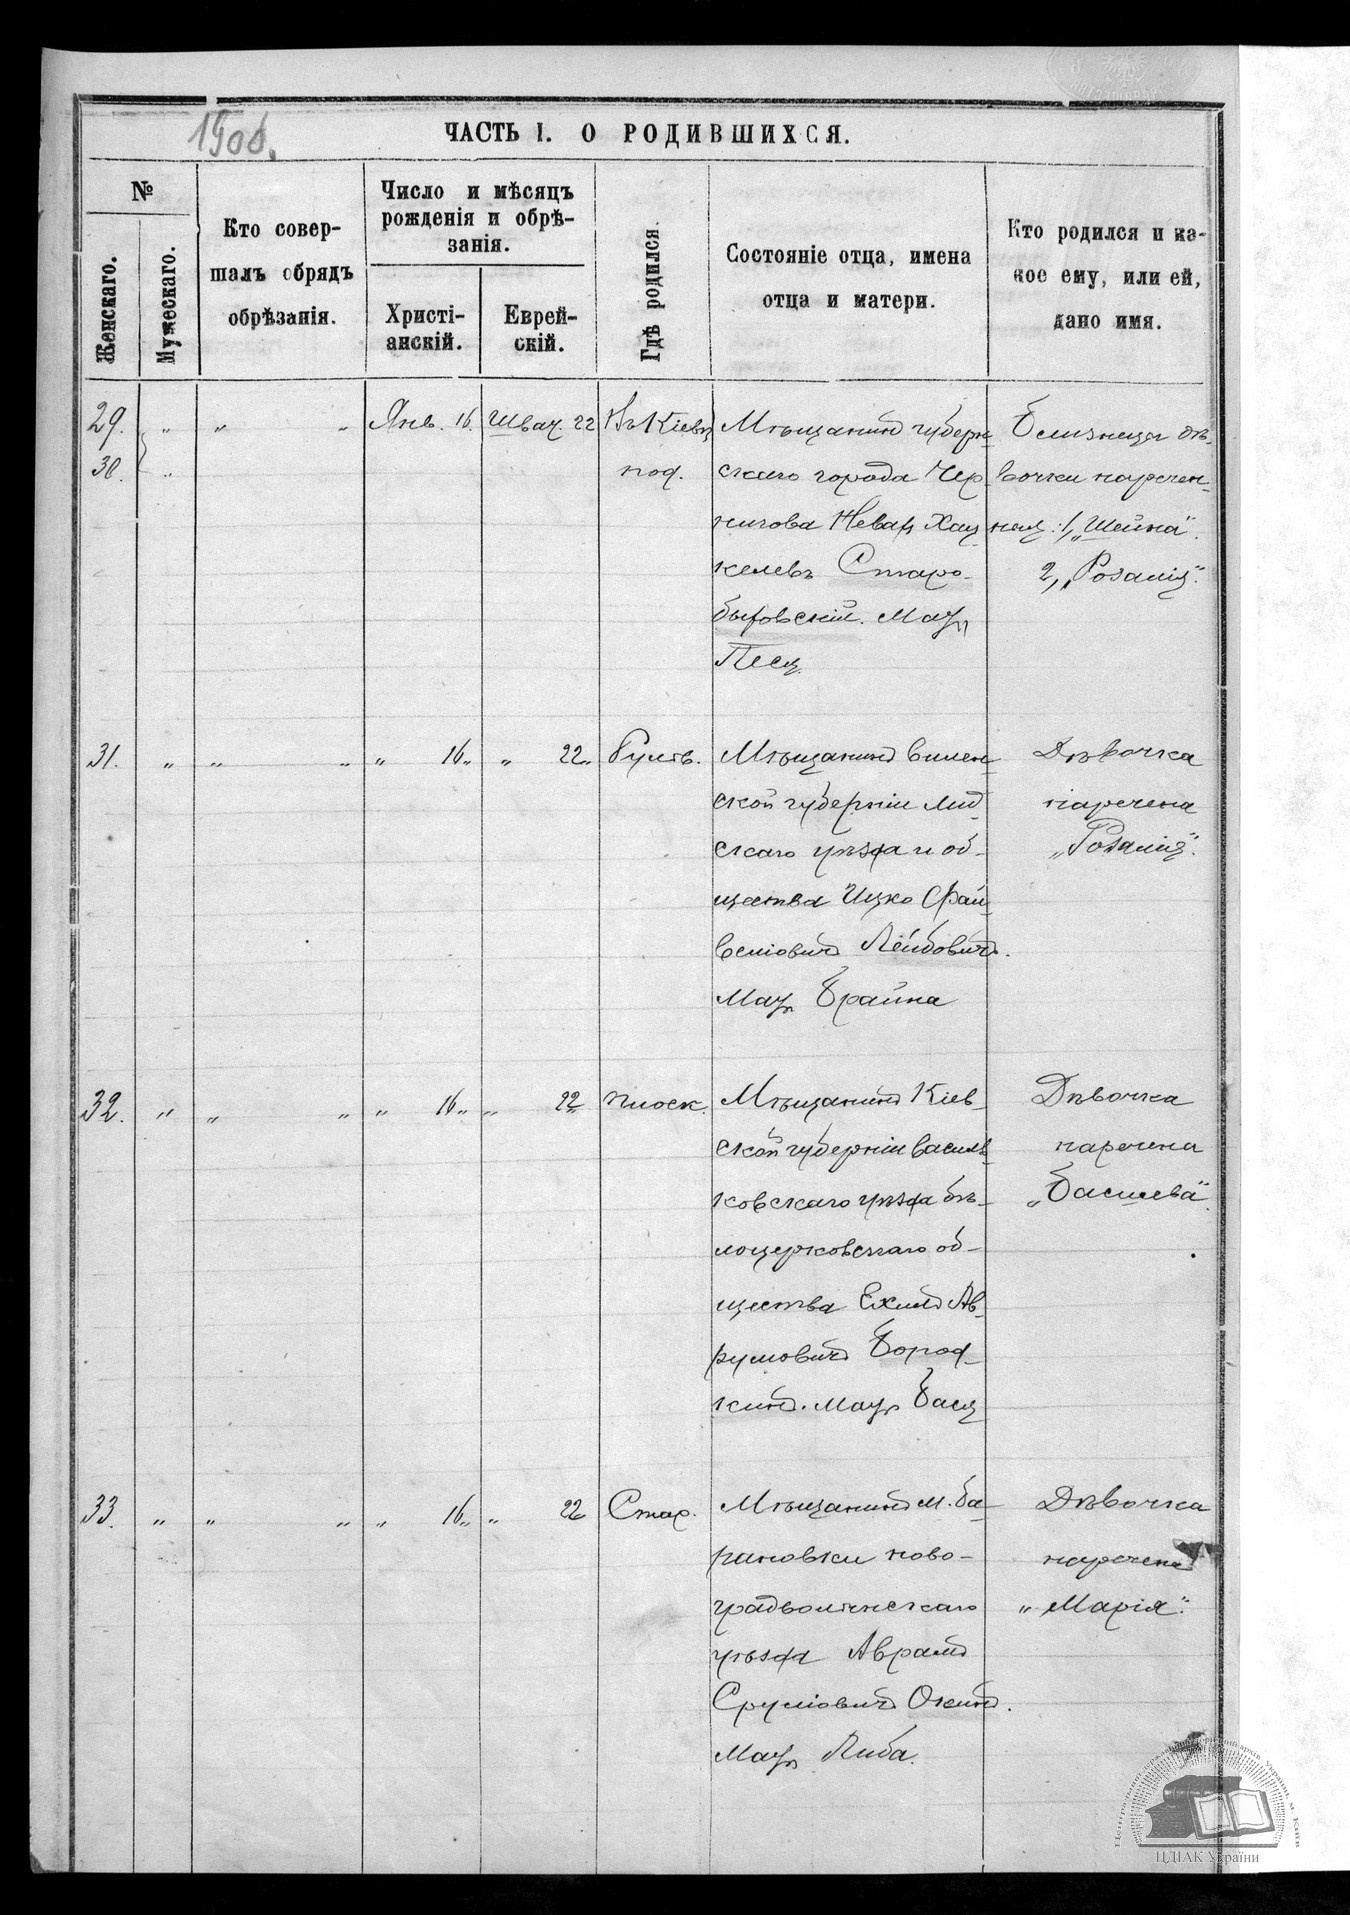 1906.
ЧАСТЬ I. О РОДИВШИХСЯ.
№
Женскаго.
Мужескаго.
Кто совер-
шалъ обрядъ
обрѣзанія.
Число и мѣсяцъ
рожденія и обрѣ-
занія.
Христі-
анскій.
Еврей-
скій.
Гдѣ родился.
Состояніе отца, имена
отца и матери.
Кто родился и ка-
кое ему, или ей,
дано имя.
29. " " " Янв. 16. Шват. 22 Въ Кіевѣ
30. " под.
Мѣщанинъ губерн-
скаго города Чер-
нигова Невах Хац
келевъ Старо-
быховскій. Мать
Песя.
Близнецы дѣ-
вочки наречен-
ныя: 1, „Шейна".
2, „Розалія".
31. " " " " 16 " " 22 " Бульв.
Мѣщанинъ Вилен-
ской губерніи Лид-
скаго уѣзда и об-
щества Ицко Фай-
велiовичъ Лейбовичъ.
Мать Брайна
Дѣвочка
наречена
„Розалія".
32. " " " " 16 " " 22 Плоск.
Мѣщанинъ Кіев-
ской губерніи Василь-
ковскаго уѣзда бѣ-
лоцерковскаго об-
щества Ехилъ Ав-
румовичъ Бород-
кинъ. Мать Бася
Дѣвочка
наречена
„Басшева".
33. " " " " 16 " " 22 Стар.
Мѣщанинъ м. Ба-
рановки Ново-
градволынскаго
уѣзда Аврамъ
Сруліовичъ Окинъ.
Мать Либа.
Дѣвочка
наречена
„Марія".
ЦДІАК України